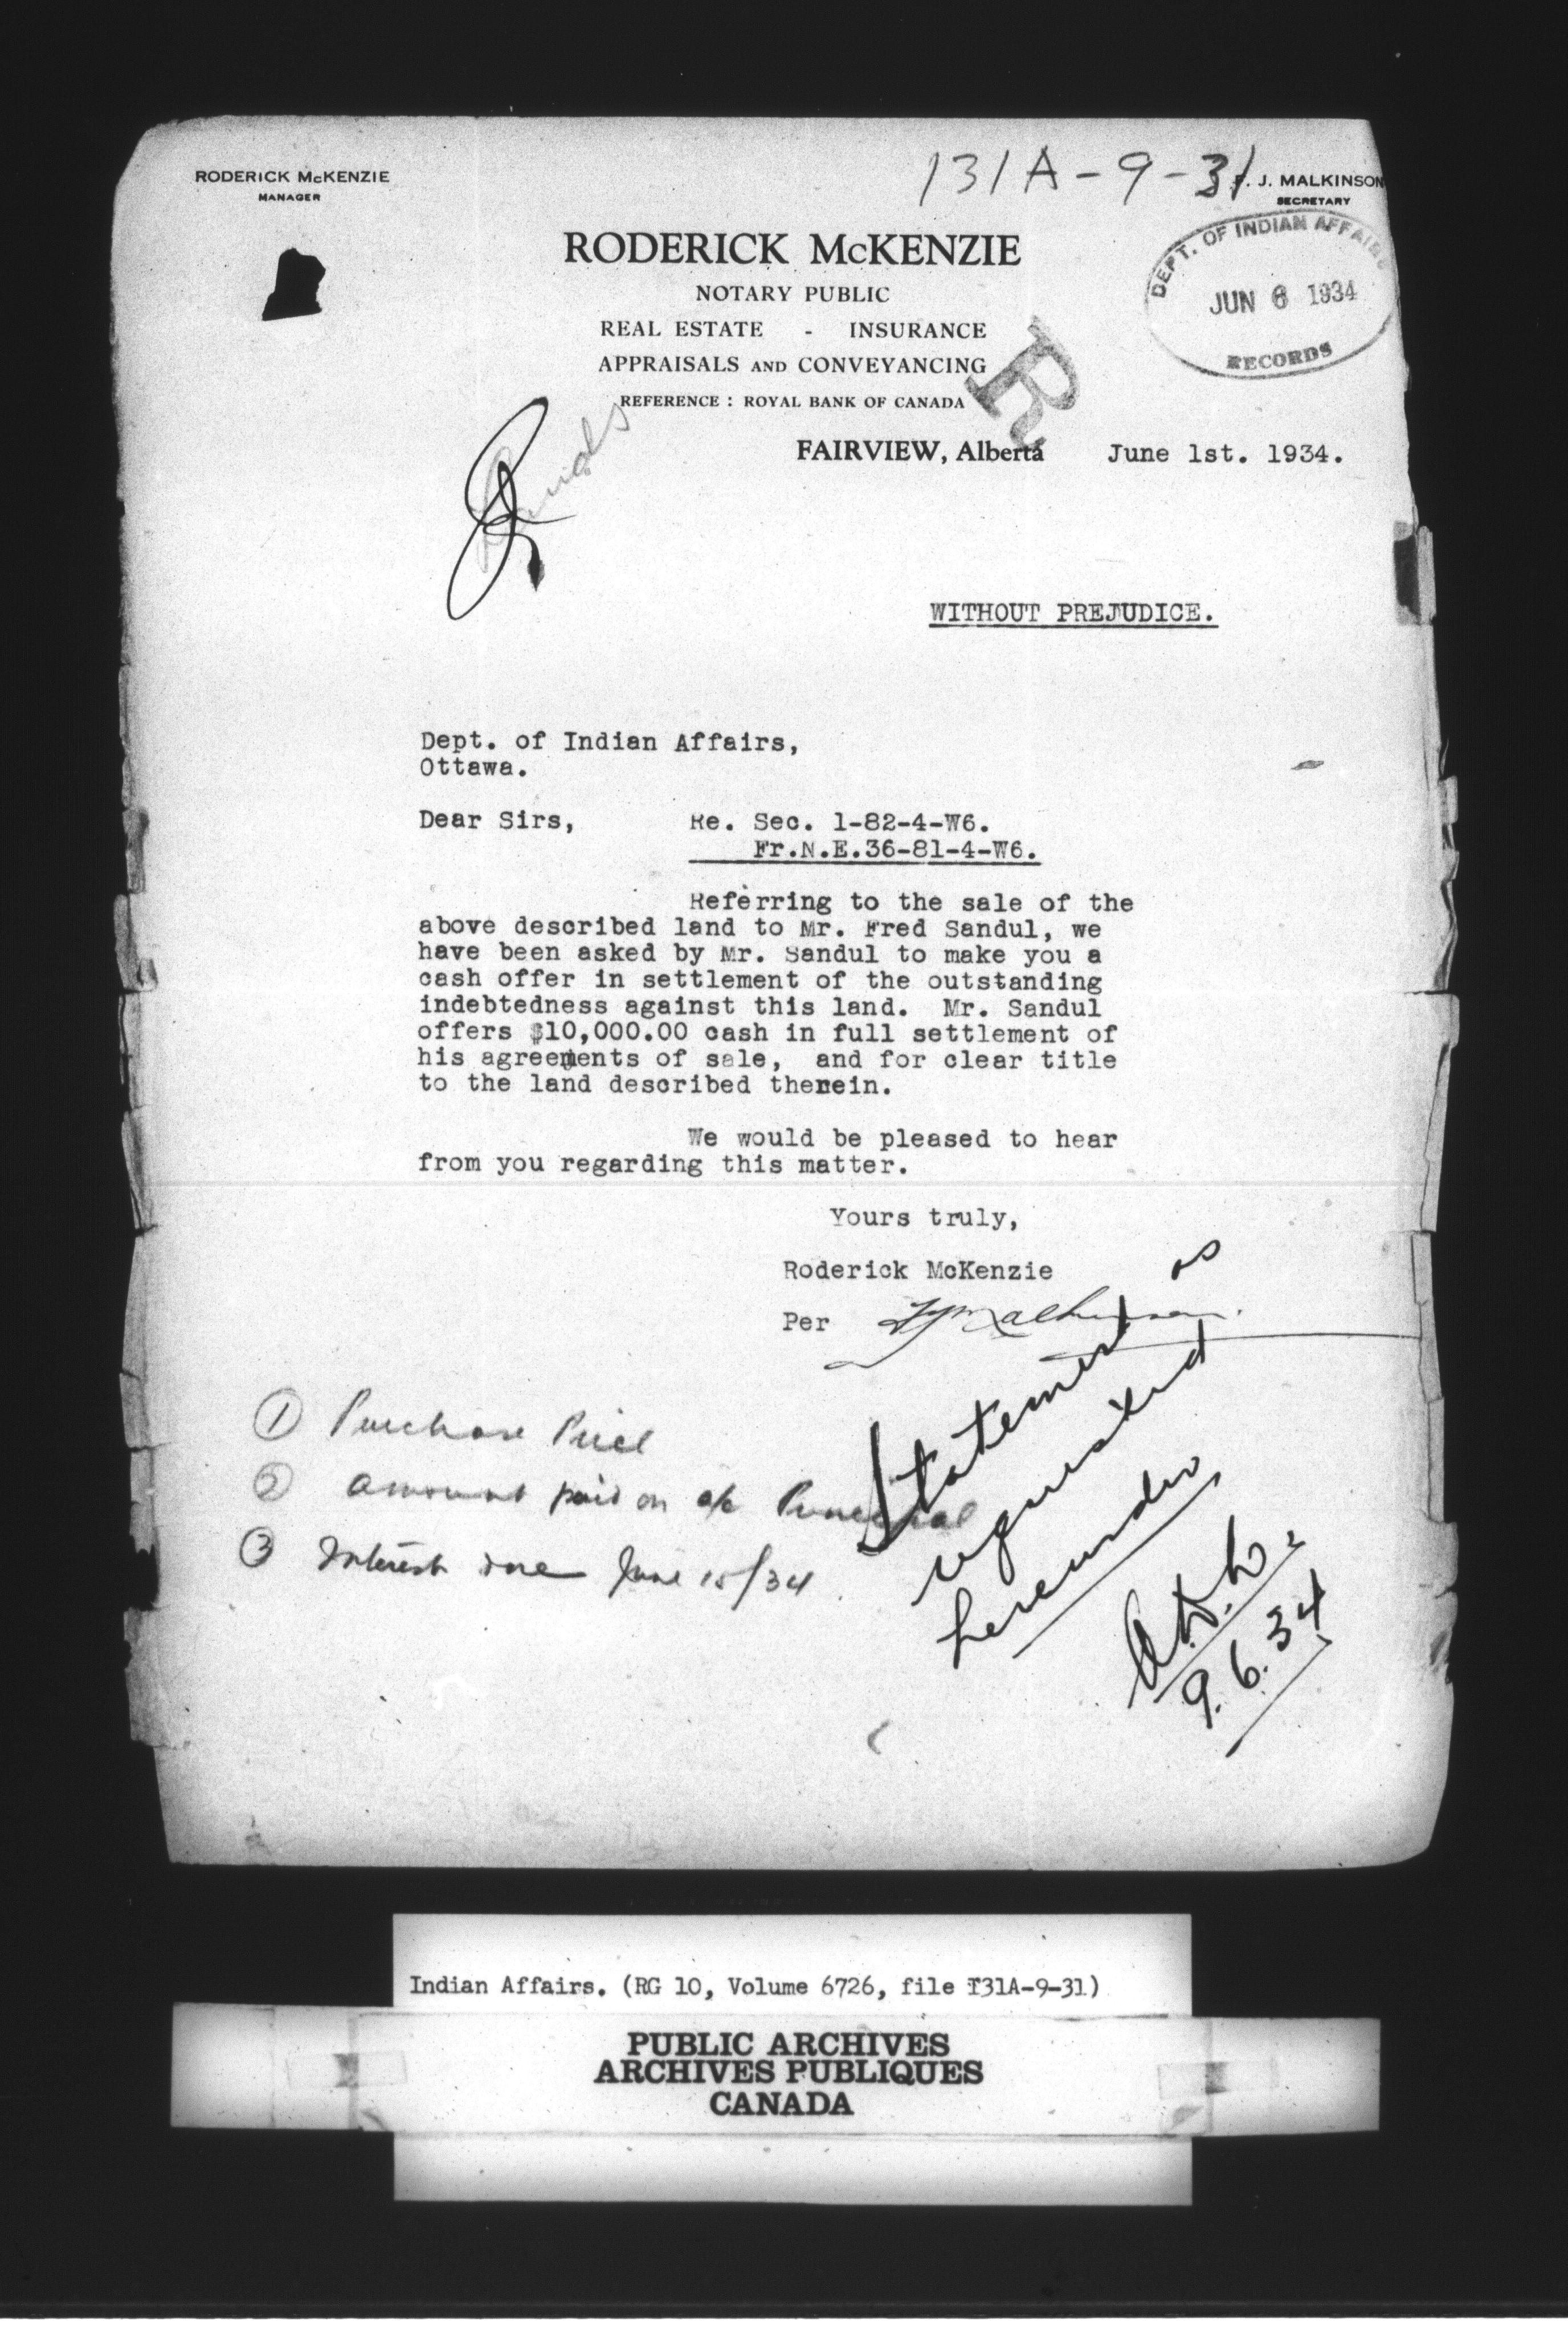 131A-9-31
RODERICK McKENZIE
MANAGER
J. MALKINSON
SECRETARY
DEPT. OF INDIAN AFFAIRS
JUN 6 1934
RECORDS
RODERICK McKENZIE
NOTARY PUBLIC
REAL ESTATE - INSURANCE
APPRAISALS AND CONVEYANCING
REFERENCE : ROYAL BANK OF CANADA
R
FAIRVIEW, Alberta June 1st. 1934.
WITHOUT PREJUDICE.
Dept. of Indian Affairs,
Ottawa.
Dear Sirs, Re. Sec. 1-82-4-W6.
Fr.N.E.36-81-4-W6.
Referring to the sale of the
above described land to Mr. Fred Sandul, we
have been asked by Mr. Sandul to make you a
cash offer in settlement of the outstanding
indebtedness against this land. Mr. Sandul
offers $10,000.00 cash in full settlement of
his agreements of sale, and for clear title
to the land described therein.
We would be pleased to hear
from you regarding this matter.
Yours truly,
Roderick McKenzie
Per
① Purchase Price
② Amount paid on a/c Principal
③ Interest due June 15/34.
Statement as
requested
hereunder
9.6.34
Indian Affairs. (RG 10, Volume 6726, file 131A-9-31)
PUBLIC ARCHIVES
ARCHIVES PUBLIQUES
CANADA